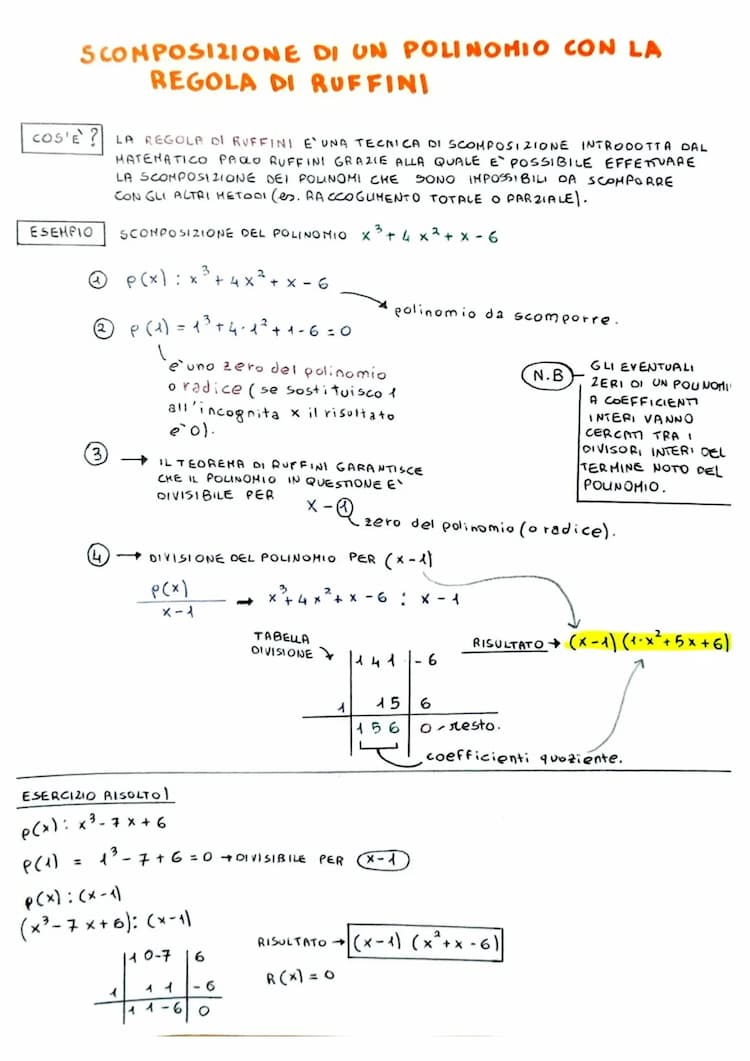 SCOMPOSIZIONE DI UN POLINOMIO CON LA
REGOLA DI RUFFINI
COS'È?
LA REGOLA DI RUFFINI E' UNA TECNICA DI SCOMPOSIZIONE INTRODOTTA DAL
MATEMATICO PAOLO RUFFINI GRAZIE ALLA QUALE E' POSSIBILE EFFETTUARE
LA SCOMPOSIZIONE DEI POLINOMI CHE SONO IMPOSSIBILI DA SCOMPORRE
CON GLI ALTRI METODI (es. RACCOGLIMENTO TOTALE O PARZIALE).
ESEMPIO SCOMPOSIZIONE DEL POLINOMIO x³ + 4x² + x - 6
① p(x) : x³ + 4x² + x - 6
polinomio da scomporre.
② p(1) = 1³ + 4·1² + 1 - 6 = 0
e' uno zero del polinomio
o radice (se sostituisco 1
all'incognita x il risultato
e' 0).
N.B
GLI EVENTUALI
ZERI DI UN POLINOMI
A COEFFICIENTI
INTERI VANNO
CERCATI TRA I
DIVISORI INTERI DEL
TERMINE NOTO DEL
POLINOMIO.
③ → IL TEOREMA DI RUFFINI GARANTISCE
CHE IL POLINOMIO IN QUESTIONE E'
DIVISIBILE PER
x - 1
zero del polinomio (o radice).
④ → DIVISIONE DEL POLINOMIO PER (x-1)
p(x)
x-1
→ x³ + 4x² + x - 6 : x - 1
TABELLA
DIVISIONE
RISULTATO → (x-1) (1·x² + 5x + 6)
1 4 1 | -6
1 | 1 5 | 6
1 5 6 | 0 - resto.
coefficienti quoziente.
ESERCIZIO RISOLTO!
p(x) : x³ - 7x + 6
p(1) = 1³ - 7 + 6 = 0 → DIVISIBILE PER x-1
p(x) : (x-1)
(x³ - 7x + 6) : (x-1)
RISULTATO → (x-1) (x² + x - 6)
R(x) = 0
1 0 -7 | 6
1 | 1 1 | -6
1 1 -6 | 0